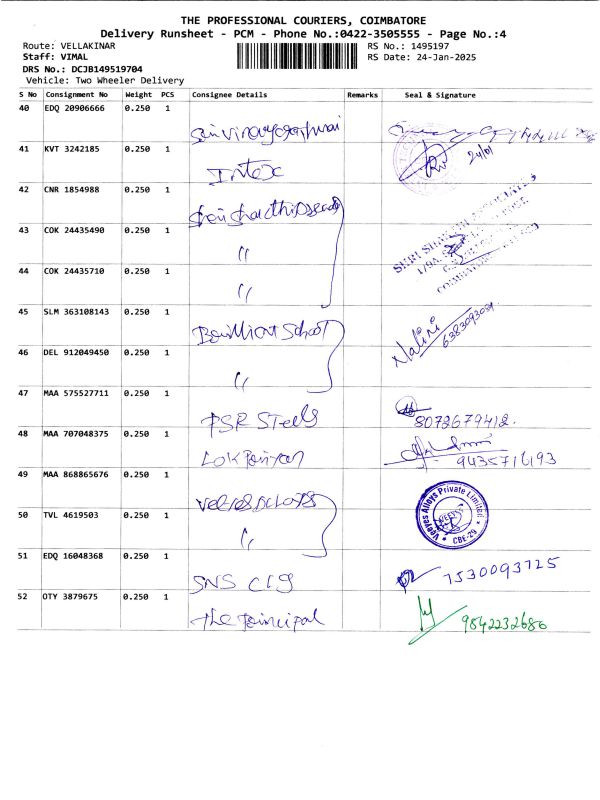 THE PROFESSIONAL COURIERS, COIMBATORE
Delivery Runsheet - PCM - Phone No.:0422-3505555 - Page No.:4
Route: VELLAKINAR RS No.: 1495197
Staff: VIMAL RS Date: 24-Jan-2025
DRS No.: DCJB149519704
Vehicle: Two Wheeler Delivery
S No Consignment No Weight PCS Consignee Details Remarks Seal & Signature
40 EDQ 20906666 0.250 1
41 KVT 3242185 0.250 1 24/01
Intex
42 CNR 1854988 0.250 1
43 COK 24435490 0.250 1
"
44 COK 24435710 0.250 1
"
45 SLM 363108143 0.250 1
School Nalini 6383093089
46 DEL 912049450 0.250 1
"
47 MAA 575527711 0.250 1
PSR Steels 8073679412.
48 MAA 707048375 0.250 1
9435716193
49 MAA 868865676 0.250 1
Veeyes Alloys Private Limited
CBE-29
50 TVL 4619503 0.250 1
"
51 EDQ 16048368 0.250 1
SNS 7530093725
52 OTY 3879675 0.250 1
The Principal 9842232686